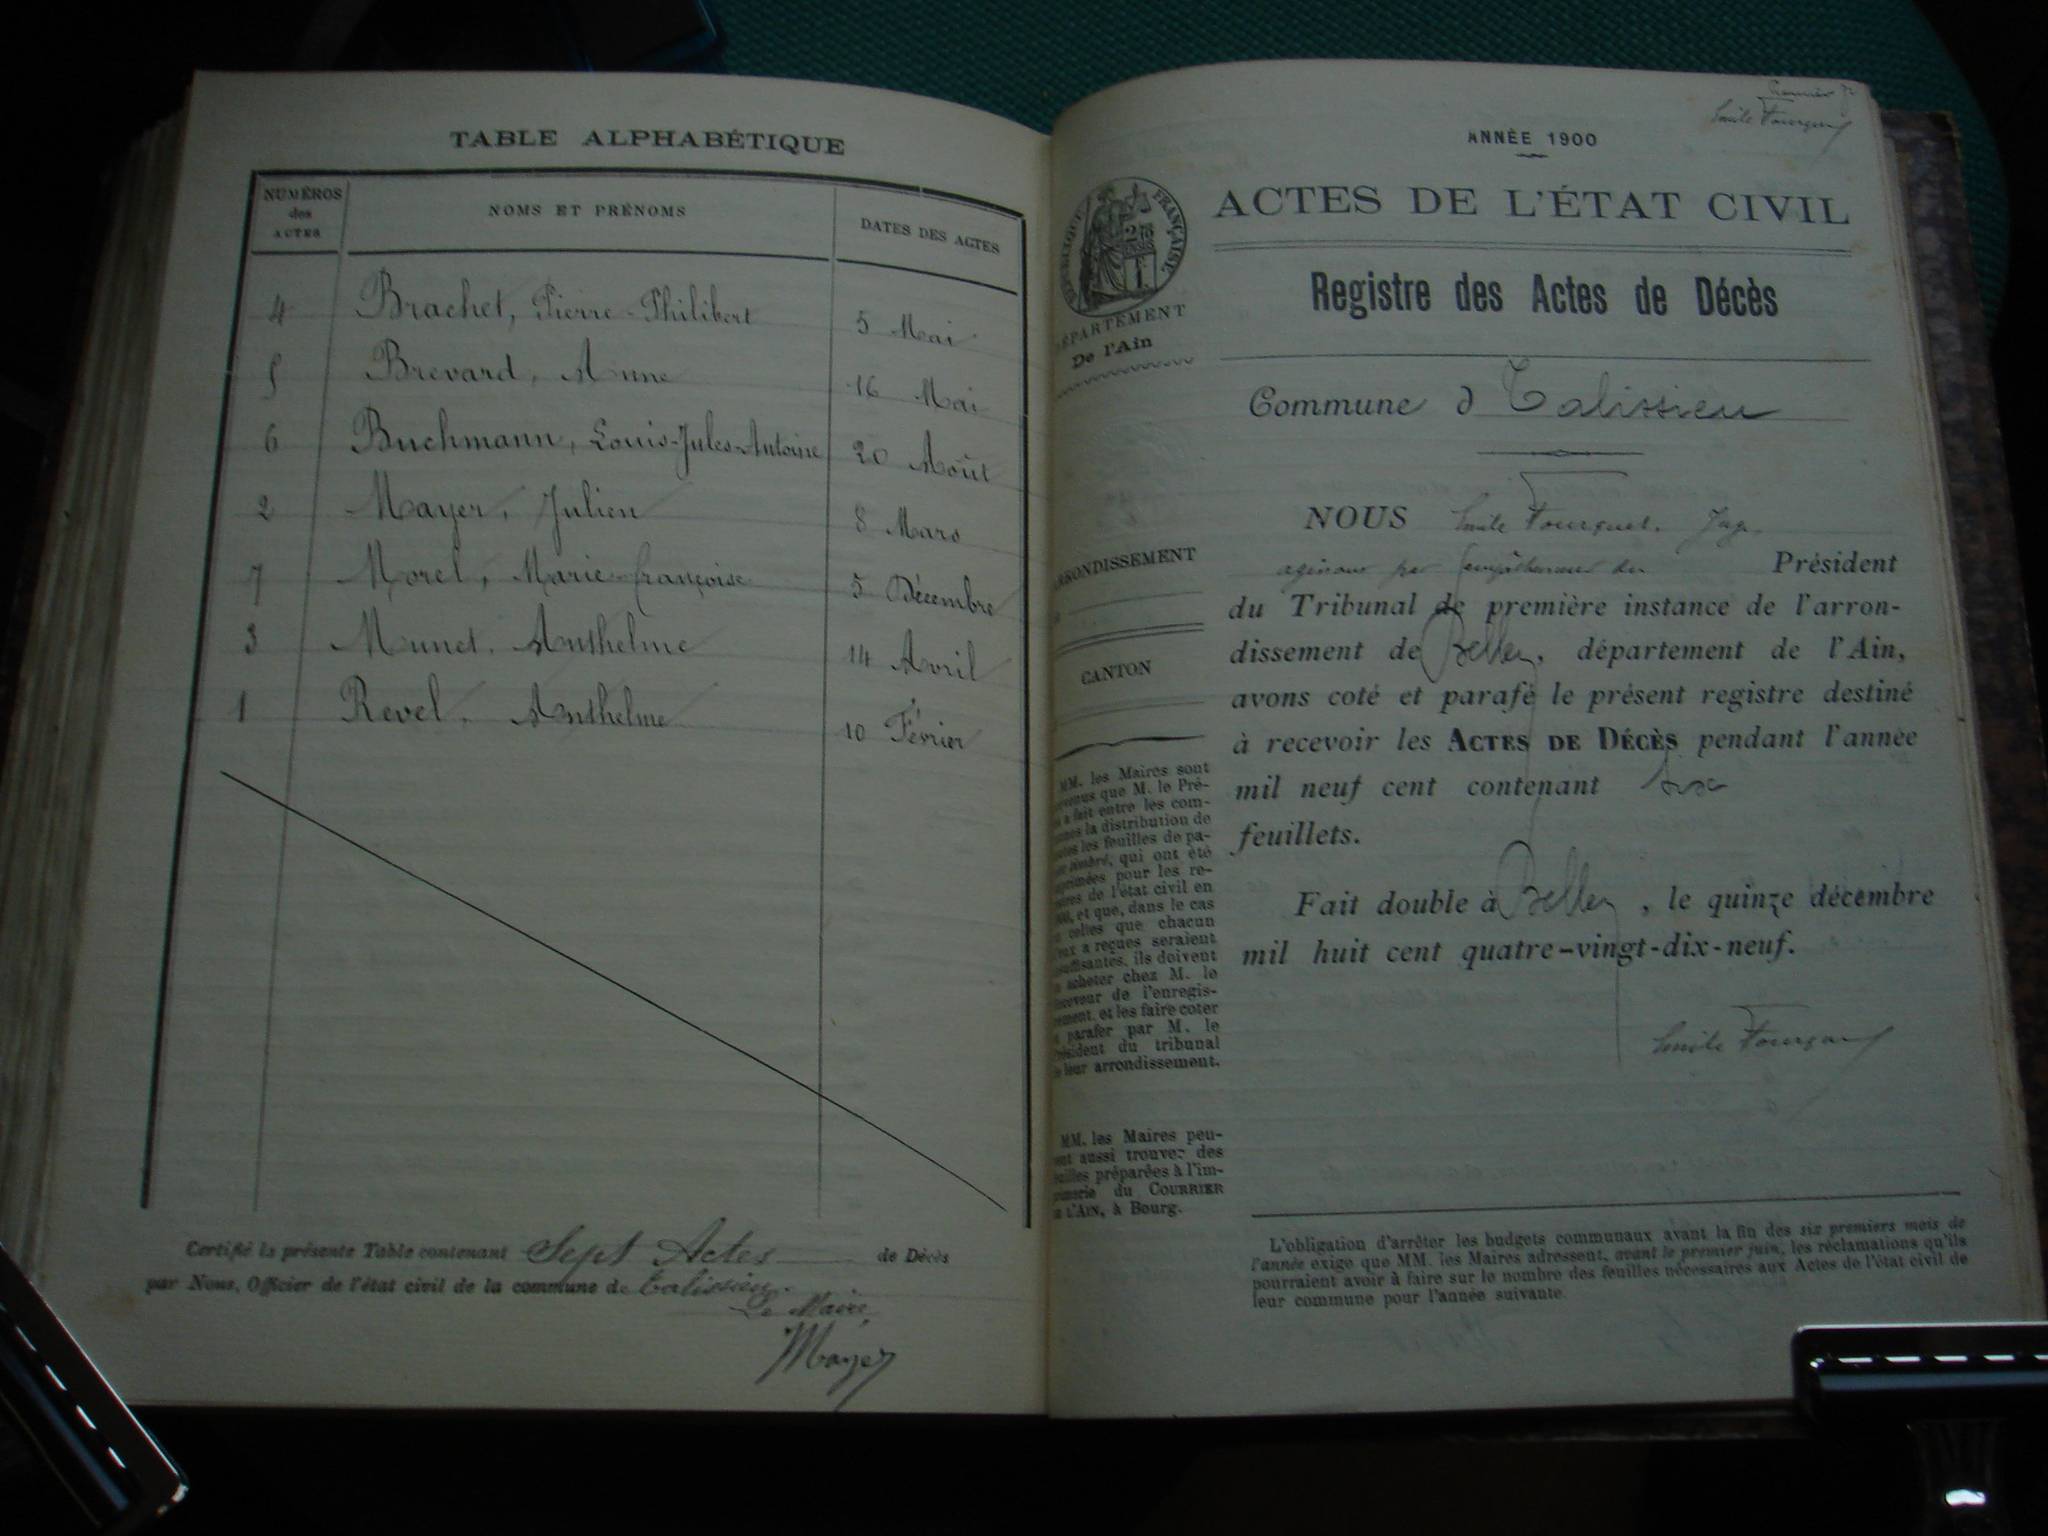 TABLE ALPHABÉTIQUE
NUMÉROS des ACTES
NOMS ET PRÉNOMS
DATES DES ACTES
4 Brachet, Pierre-Philibert 5 Mai
5 Brevard, Anne 16 Mai
6 Buchmann, Louis-Jules-Antoine 20 Août
2 Mayer, Julien 8 Mars
7 Morel, Marie-françoise 5 Décembre
3 Munet, Anthelme 14 Avril
1 Revel, Anthelme 10 Février
Certifié la présente Table contenant Sept Actes de Décès
par Nous, Officier de l'état civil de la commune de Talissieu.
Le Maire,
Mayer
Emile Fourquet
ANNÉE 1900
ACTES DE L'ÉTAT CIVIL
RÉPUBLIQUE FRANÇAISE
DÉPARTEMENT
De l'Ain
Registre des Actes de Décès
Commune d Talissieu
NOUS Emile Fourquet, Juge
par empêchement du Président
du Tribunal de première instance de l'arron-
dissement de Belley, département de l'Ain,
avons coté et parafé le présent registre destiné
à recevoir les ACTES DE DÉCÈS pendant l'année
mil neuf cent contenant six
feuillets.
Fait double à Belley, le quinze décembre
mil huit cent quatre-vingt-dix-neuf.
Emile Fourquet
ARRONDISSEMENT
CANTON
MM. les Maires sont
que M. le Pré-
a fait entre les com-
la distribution de
les feuilles de pa-
timbré, qui ont été
pour les re-
de l'état civil en
et que, dans le cas
celles que chacun
a reçues seraient
ils doivent
acheter chez M. le
de l'enregis-
et les faire coter
parafer par M. le
Président du tribunal
de leur arrondissement.
MM. les Maires peu-
aussi trouver des
préparées à l'im-
du COURRIER
L'AIN, à Bourg.
L'obligation d'arrêter les budgets communaux avant la fin des six premiers mois de
l'année exige que MM. les Maires adressent, avant le premier juin, les réclamations qu'ils
pourraient avoir à faire sur le nombre des feuilles nécessaires aux Actes de l'état civil de
leur commune pour l'année suivante.